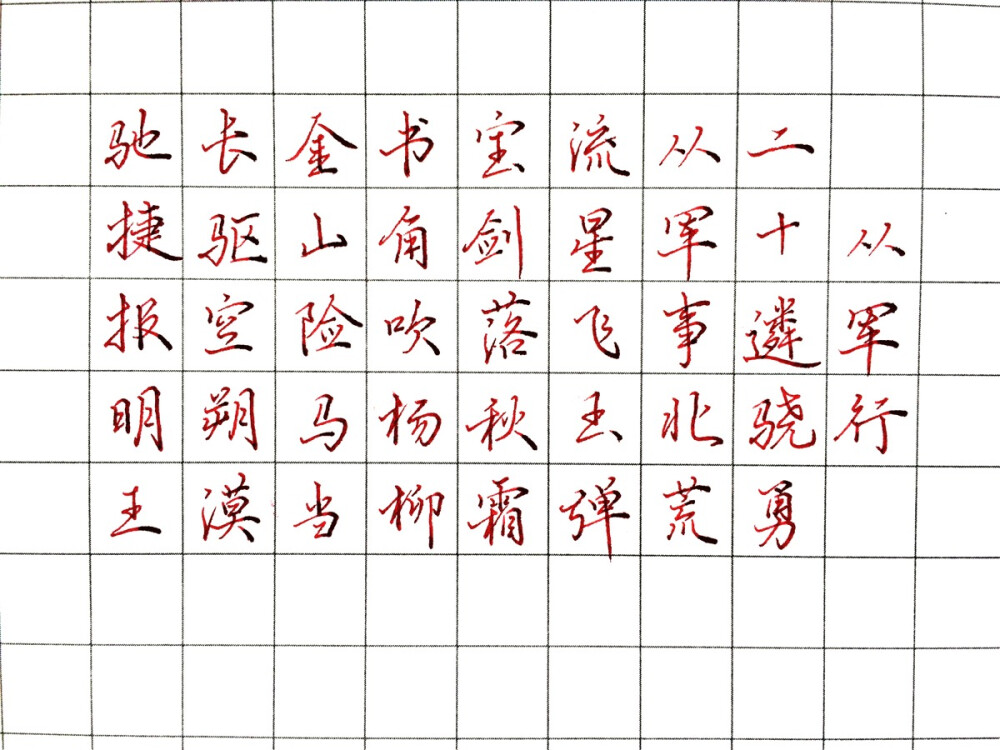 从军行
二十遴骁勇
从军事北荒
流星飞玉弹
宝剑落秋霜
书角吹杨柳
金山险马当
长驱空朔漠
驰捷报明王